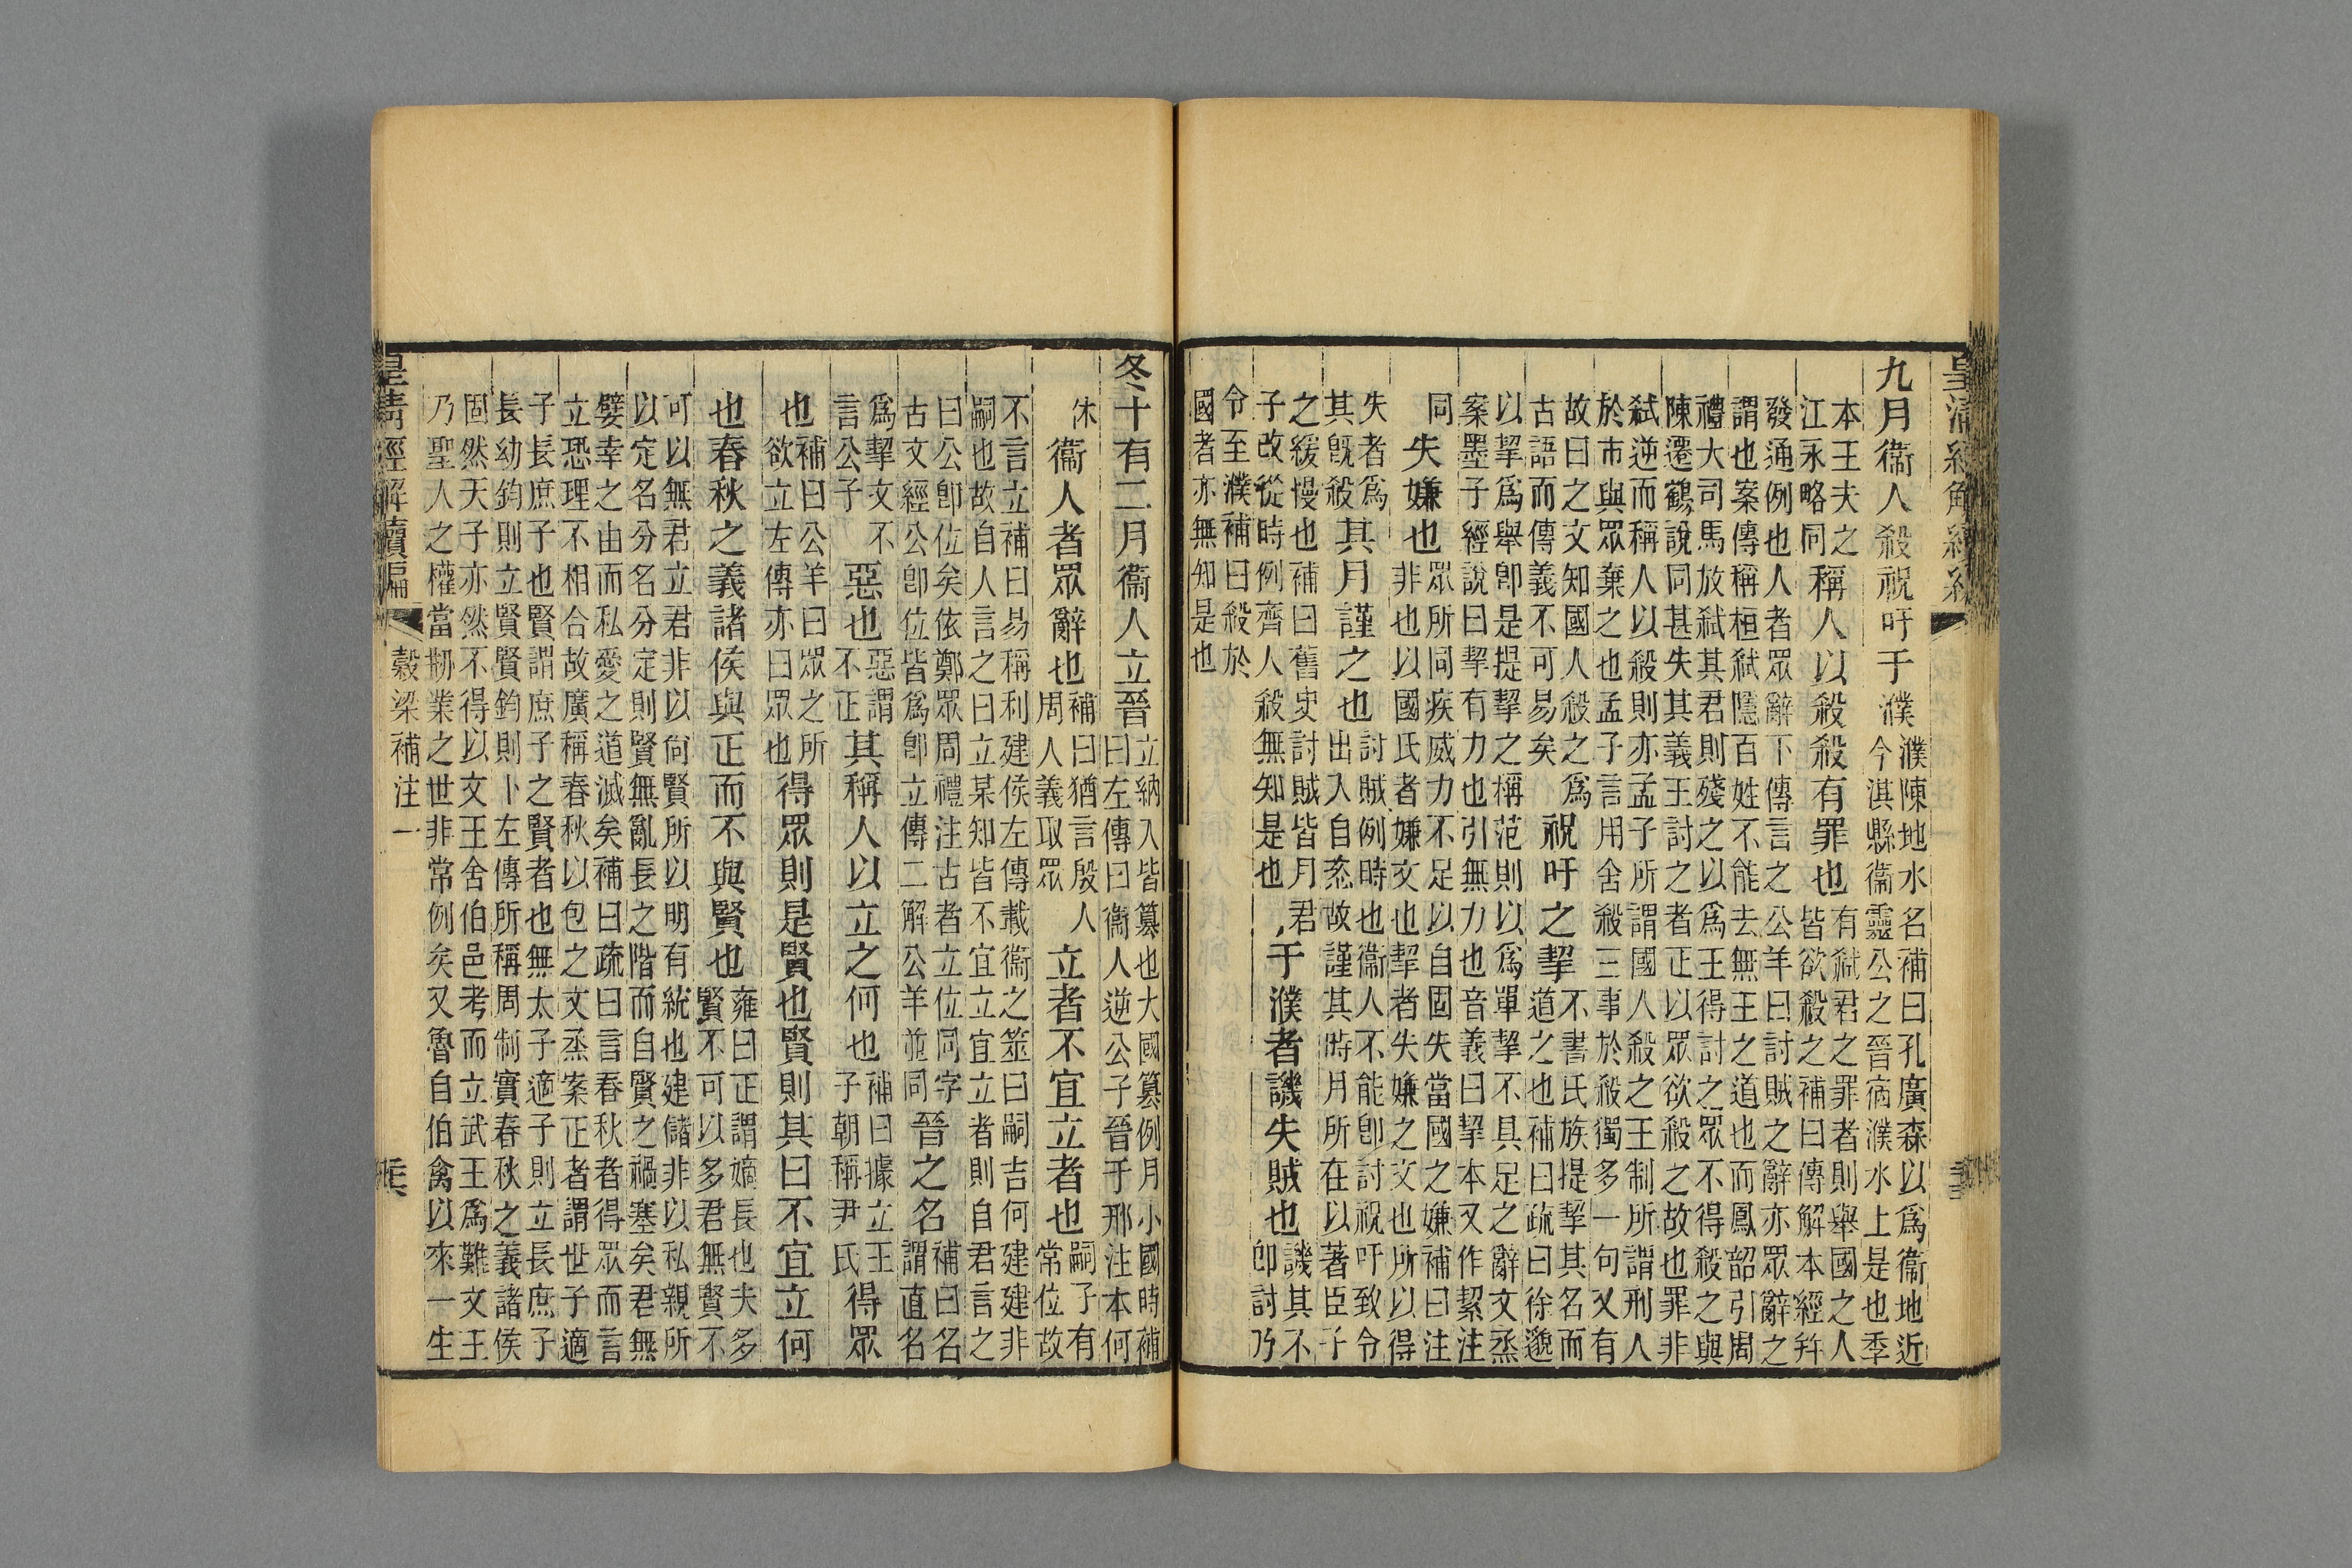 九月衞人殺祝吁于濮
濮陳地水名補曰孔廣森以爲衞地近
今淇縣衞靈公之晉宿濮水上是也季
本王夫之
江永略同
稱人以殺殺有罪也
有弑君之罪者則舉國之人
皆欲殺之補曰傳解本經幷
發通例也人者眾辭下傳言之公羊曰討賊之辭亦眾辭之
謂也案傳稱桓弑隱百姓不能去無王之道也而鳳韶引周
禮大司馬放弑其君則殘之以爲王得討之眾不得殺之與
陳遷鶴說同甚失其義王討之者正以眾欲殺之故也罪非
弑逆而稱人以殺則亦孟子所謂國人殺之王制所謂刑人
於市與眾棄之也孟子言用舍殺三事於殺獨多一句又有
故曰之文知國人殺之爲
古語而傳義不可易矣
祝吁之挈
不書氏族提挈其名而
道之也補曰疏曰徐邈
以挈爲舉卽是提挈之稱范則以爲單挈不具足之辭文烝
案墨子經說曰挈有力也引無力也音義曰挈本又作絜注
同
失嫌也
眾所同疾威力不足以自固失當國之嫌補曰注
非也以國氏者嫌文也挈者失嫌之文也所以得
失者爲
其旣殺
其月謹之也
討賊例時也衞人不能卽討祝吁致令
出入自恣故謹其時月所在以著臣子
之緩慢也補曰舊史討賊皆月君
子改從時例齊人殺無知是也
于濮者譏失賊也
譏其不
卽討乃
令至濮補曰殺於
國者亦無知是也
冬十有二月衞人立晉
立納入皆篡也大國篡例月小國時補
曰左傳曰衞人逆公子晉于邢注本何
休
衞人者眾辭也
補曰猶言殷人
周人義取眾
立者不宜立者也
嗣子有
常位故
不言立補曰易稱利建侯左傳載衞之筮曰嗣吉何建建非
嗣也故自人言之曰立某知皆不宜立宜立者則自君言之
曰公卽位矣依鄭眾周禮注古者立位同字
古文經公卽位皆爲卽立傳二解公羊並同
晉之名
補曰名
謂直名
爲挈文不
言公子
惡也
惡謂
不正
其稱人以立之何也
補曰據立王
子朝稱尹氏
得眾
也
補曰公羊曰眾之所
欲立左傳亦曰眾也
得眾則是賢也賢則其曰不宜立何
也春秋之義諸侯與正而不與賢也
雍曰正謂嫡長也夫多
賢不可以多君無賢不
可以無君立君非以尙賢所以明有統也建儲非以私親所
以定名分名分定則賢無亂長之階而自賢之禍塞矣君無
嬖幸之由而私愛之道滅矣補曰疏曰言春秋者得眾而言
立恐理不相合故廣稱春秋以包之文烝案正者謂世子適
子長庶子也賢謂庶子之賢者也無太子適子則立長庶子
長幼鈞則立賢賢鈞則卜左傳所稱周制實春秋之義諸侯
固然天子亦然不得以文王舍伯邑考而立武王爲難文王
乃聖人之權當剏業之世非常例矣又魯自伯禽以來一生
皇清經解續編
穀梁補注一